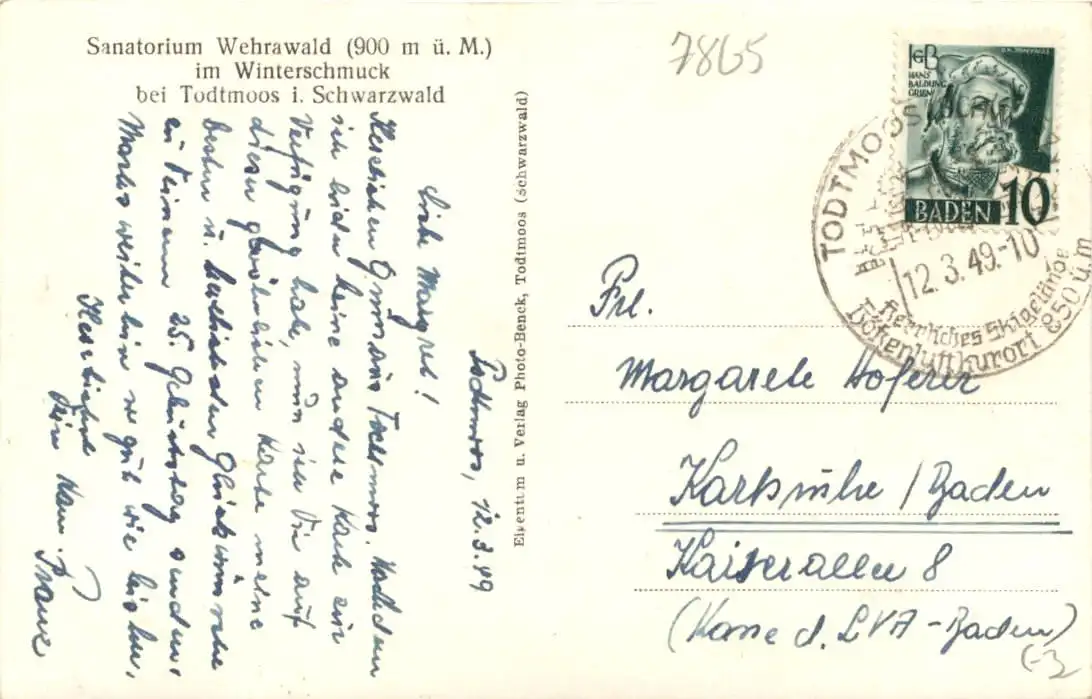 Sanatorium Wehrawald (900 m ü. M.)
im Winterschmuck
bei Todtmoos i. Schwarzwald
Todtmoos, 12.3.49
Liebe Margret!
Herzlichen Gruss aus Todtmoos. Nachdem
ich leider keine andere Karte zur
Verfügung habe, muss ich Dir auf
dieser gewöhnlichen Karte meine
besten u. herzlichsten Glückwünsche
zu Deinem 25. Geburtstag senden.
Mach's weiterhin so gut wie bisher,
Herzlichst
Dein
Eigentum u. Verlag Photo-Benck, Todtmoos (Schwarzwald)
7865
HANS
BALDUNG
GRIEN
BADEN 10
TODTMOOS
12.3.49.-10
Herrliches Skigelände
Höhenluftkurort 850 ü.m
Frl.
Margarete Hoferer
Karlsruhe / Baden
Kaiserallee 8
(Kasse d. LVA-Baden)